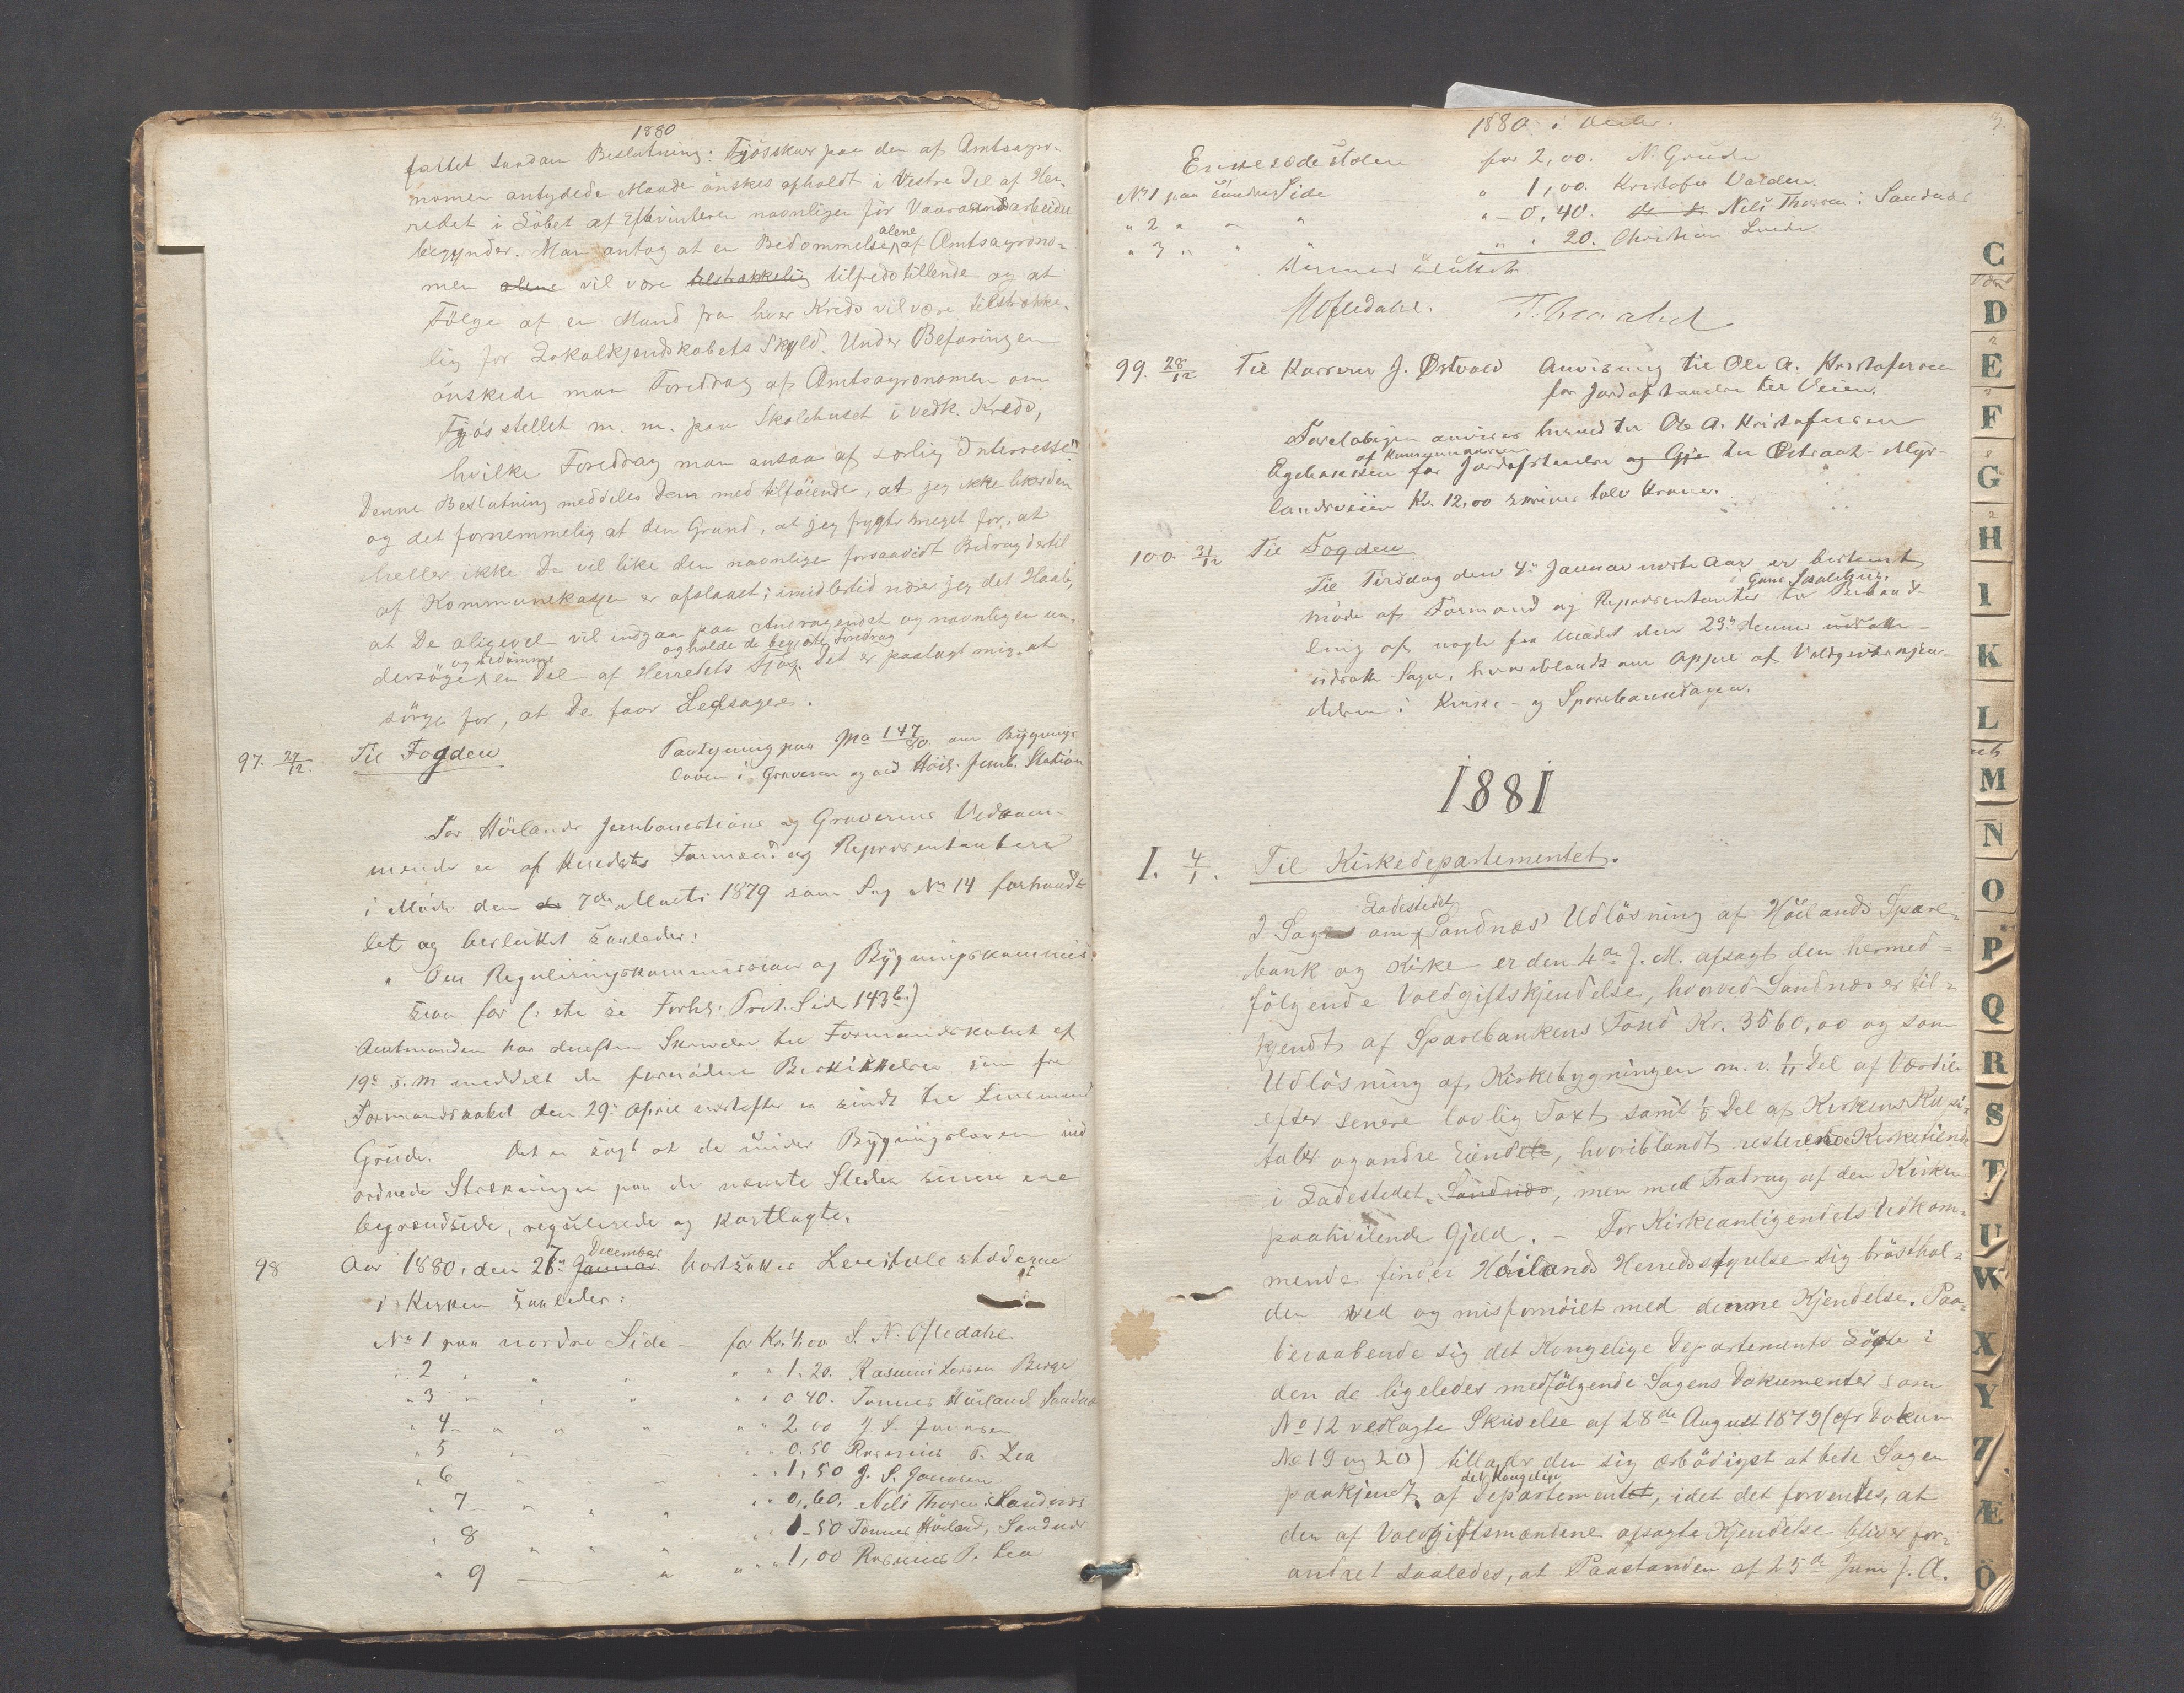 1880
fattet saadan Beslutning: Fjösskuer paa den af Amtsagro-
nomen antydede Maade önskes afholdt i Vestre Del af Her-
redet i Löbet af Eftervinteren navnligen för Vaaraandsarbeidet
begynder. Man antog at en Bedømmelse alene af Amtsagrono-
men alene vil være tilstrækkelig tilfredsstillende og at
Følge af en Mand fra hver Kreds vil være tilstrække-
lig for Lokalkjendskabets Skyld. Under Befaringen
önskede man Foredrag af Amtsagronomen om
Fjösstellet m. m. paa Skolehuset i vedk. Kreds,
hvilke Foredrag man ansaa af særlig Interresse."
Denne Beslutning meddeles Dem med tilföiende, at jeg ikke liker den
og det fornemmelig at den Grund, at jeg frygter meget for, at
heller ikke De vil like den navnligen forsaavidt Bidrag dertil
af Kommunekassen er afslaaet; imidlertid nærer jeg det Haab,
at De aligevel vil indgaa paa Andragendet og navnligen un-
og bedömme og holde de begjærte Foredrag
dersöge en Del af Herredets Fjös. Det er paalagt mig at
sörge for, at De faar Ledsagere.
97. 27/12. Til Fogden Paategning paa Ma 147/80 om Bygnings
loven i Graveren og ved Höil. Jernb. Station
For Höilands Jernbanestations og Graverens Vedkom-
mende er af Herredets Formænd og Repræsentantere
i Möde den 7de Marts 1879 som Sag No 14 forhand-
let og besluttet saaledes:
" Om Reguleringskommission og Bygningskommis-
sion for (: etc se Forhs. Prot. Side 143 b.)
Amtmanden har derefter Skrivelse til Formandskabet af
19de s. M meddelt de fornødne Beskikkelser som fra
Formandskabet den 29de April næstefter er sendt til Lensmand
Grude. Det er sagt at de under Bygningsloven ind
ordnede Strækninger paa de nævnte Steder senere ere
begrændsede, regulerede og kartlagte.
98 Aar 1880, den 27de Januar December bortsattes Leiestole stæderne
i Kirken saaledes:
No 1 paa nordre Side - for Kr. 4,00 S. N. Ofledahl.
" 2 " " " " " 1.20. Rasmus Larsen Berge
" 3 " " " " " 0.40. Tønnes Höiland Sandnæs
" 4 " " " " " 2.00 J. S. Jonasen
" 5 " " 0.50 Rasmus T. Lea
" 6 " " 1,50 J. S. Jonasen
" 7 " " " " " 0,60. Nils Thorsen Sandnæs
" 8 " " " " " 1-50 Tønnes Höiland, Sandnæs
" 9 " " " " 1,00 Rasmus T. Lea
1880 i Decbr.
for 2,00. N. Grude
No 1 paa søndre Side " 1,00. Kristofer Varden.
" 2 " " " " 0,40. Nils Thorsen i Sandnæs
" 3 " " " " " 20. Christian Lunde
Hermed sluttet
Ofledahl.
99. 28/12 Til Kasserer J. Østvold Anvisning til Ole A. Kristofersen
for Jordafstaaelse til Veien.
Foreløbigen anvises herved til Ole A. Kristofersen
af Kommunekassen
for Jordafstaaelse og Gje til Østraat - Myr-
landsveien Kr. 12,00 skriver tolv Kroner.
100. 31/12 Til Fogden
Til Tirsdag den 4de Januar næste Aar er bestemt
Gans Skolehus.
Møde af Formænd og Repræsentanter til Behand-
ling af nogle fra Mødet den 29de dennes udsatte
udsatte Sager, hvoriblandt om Appel af Voldgiftskjen-
delsen i Kirke- og Sparebanksagen.
1881
1. 4/1. Til Kirkedepartementet.
Ladestedet
I Sagen om Sandnæs' Udlösning af Höilands Spare-
bank og Kirke er den 4de f. M. afsagt den hermed-
fölgende Voldgiftskjendelse, hvorved Sandnæs er til-
kjendt af Sparebankens Fond Kr. 3560,00 og som
Udlösning af Kirkebygningen m. v. 1/11 Del af Værdien
efter senere lovlig Taxt samt 1/5 Del af Kirkens Kapi-
taler og andre Eiendele, hvoriblandt resterende Kirketiende
i Ladestedet Sandnæs, men med Fradrag af den Kirken
paahvilende Gjeld. - For Kirkeanligendets Vedkom-
mende finder Höilands Herredsstyrelse sig brösthol-
den ved og misfornöiet med denne Kjendelse. Paa-
beraabende sig det Kongelige Departements
den de ligeledes medfölgende Sagens Dokumenter som
No 12 vedlagte Skrivelse af 28de August 1879 (cfr Dokum
No 19 og 20) tillader den sig ærbödigst at bede Sagen
det Kongelige
paakjendt af Departementet, idet det forventes, at
den af Voldgiftsmændene afsagte Kjendelse bliver for-
andret saaledes, at Paastanden af 25de Juni f. A.
C
D
E
F
G
H
I
K
L
M
N
O
P
Q
R
S
T
U
W
X
Y
Z
Æ
Ö